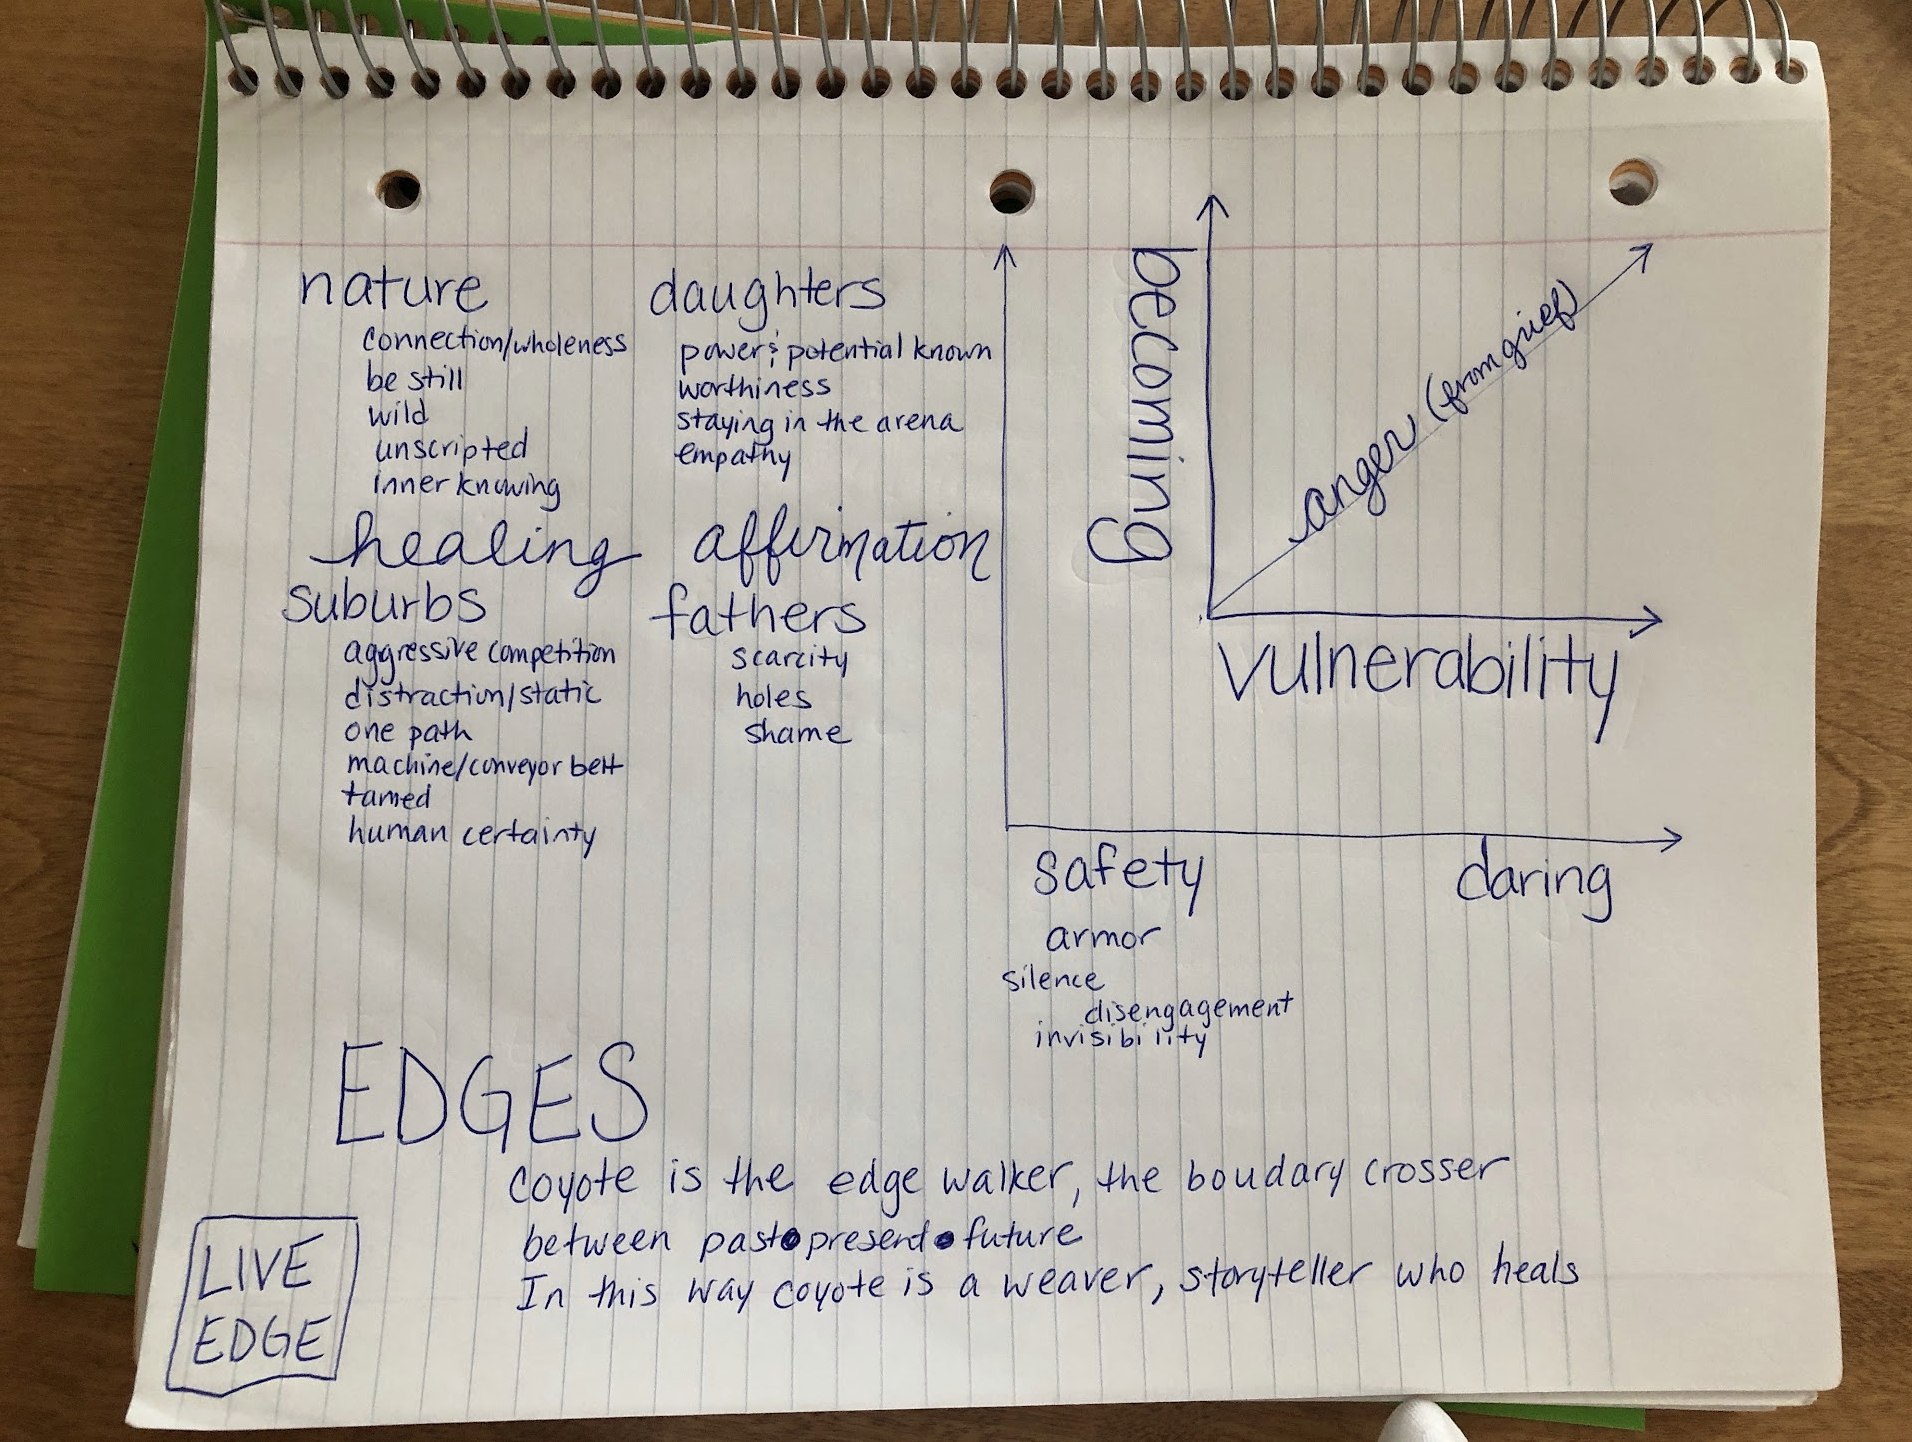 nature
connection/wholeness
be still
wild
unscripted
inner knowing
healing
suburbs
aggressive competition
distraction/static
one path
machine/conveyor belt
tamed
human certainty
daughters
power & potential known
worthiness
staying in the arena
empathy
affirmation
fathers
scarcity
holes
shame
becoming
anger (from grief)
vulnerability
safety
daring
armor
silence
disengagement
invisibility
EDGES
coyote is the edge walker, the boudary crosser
between past•present•future
In this way coyote is a weaver, storyteller who heals
LIVE
EDGE